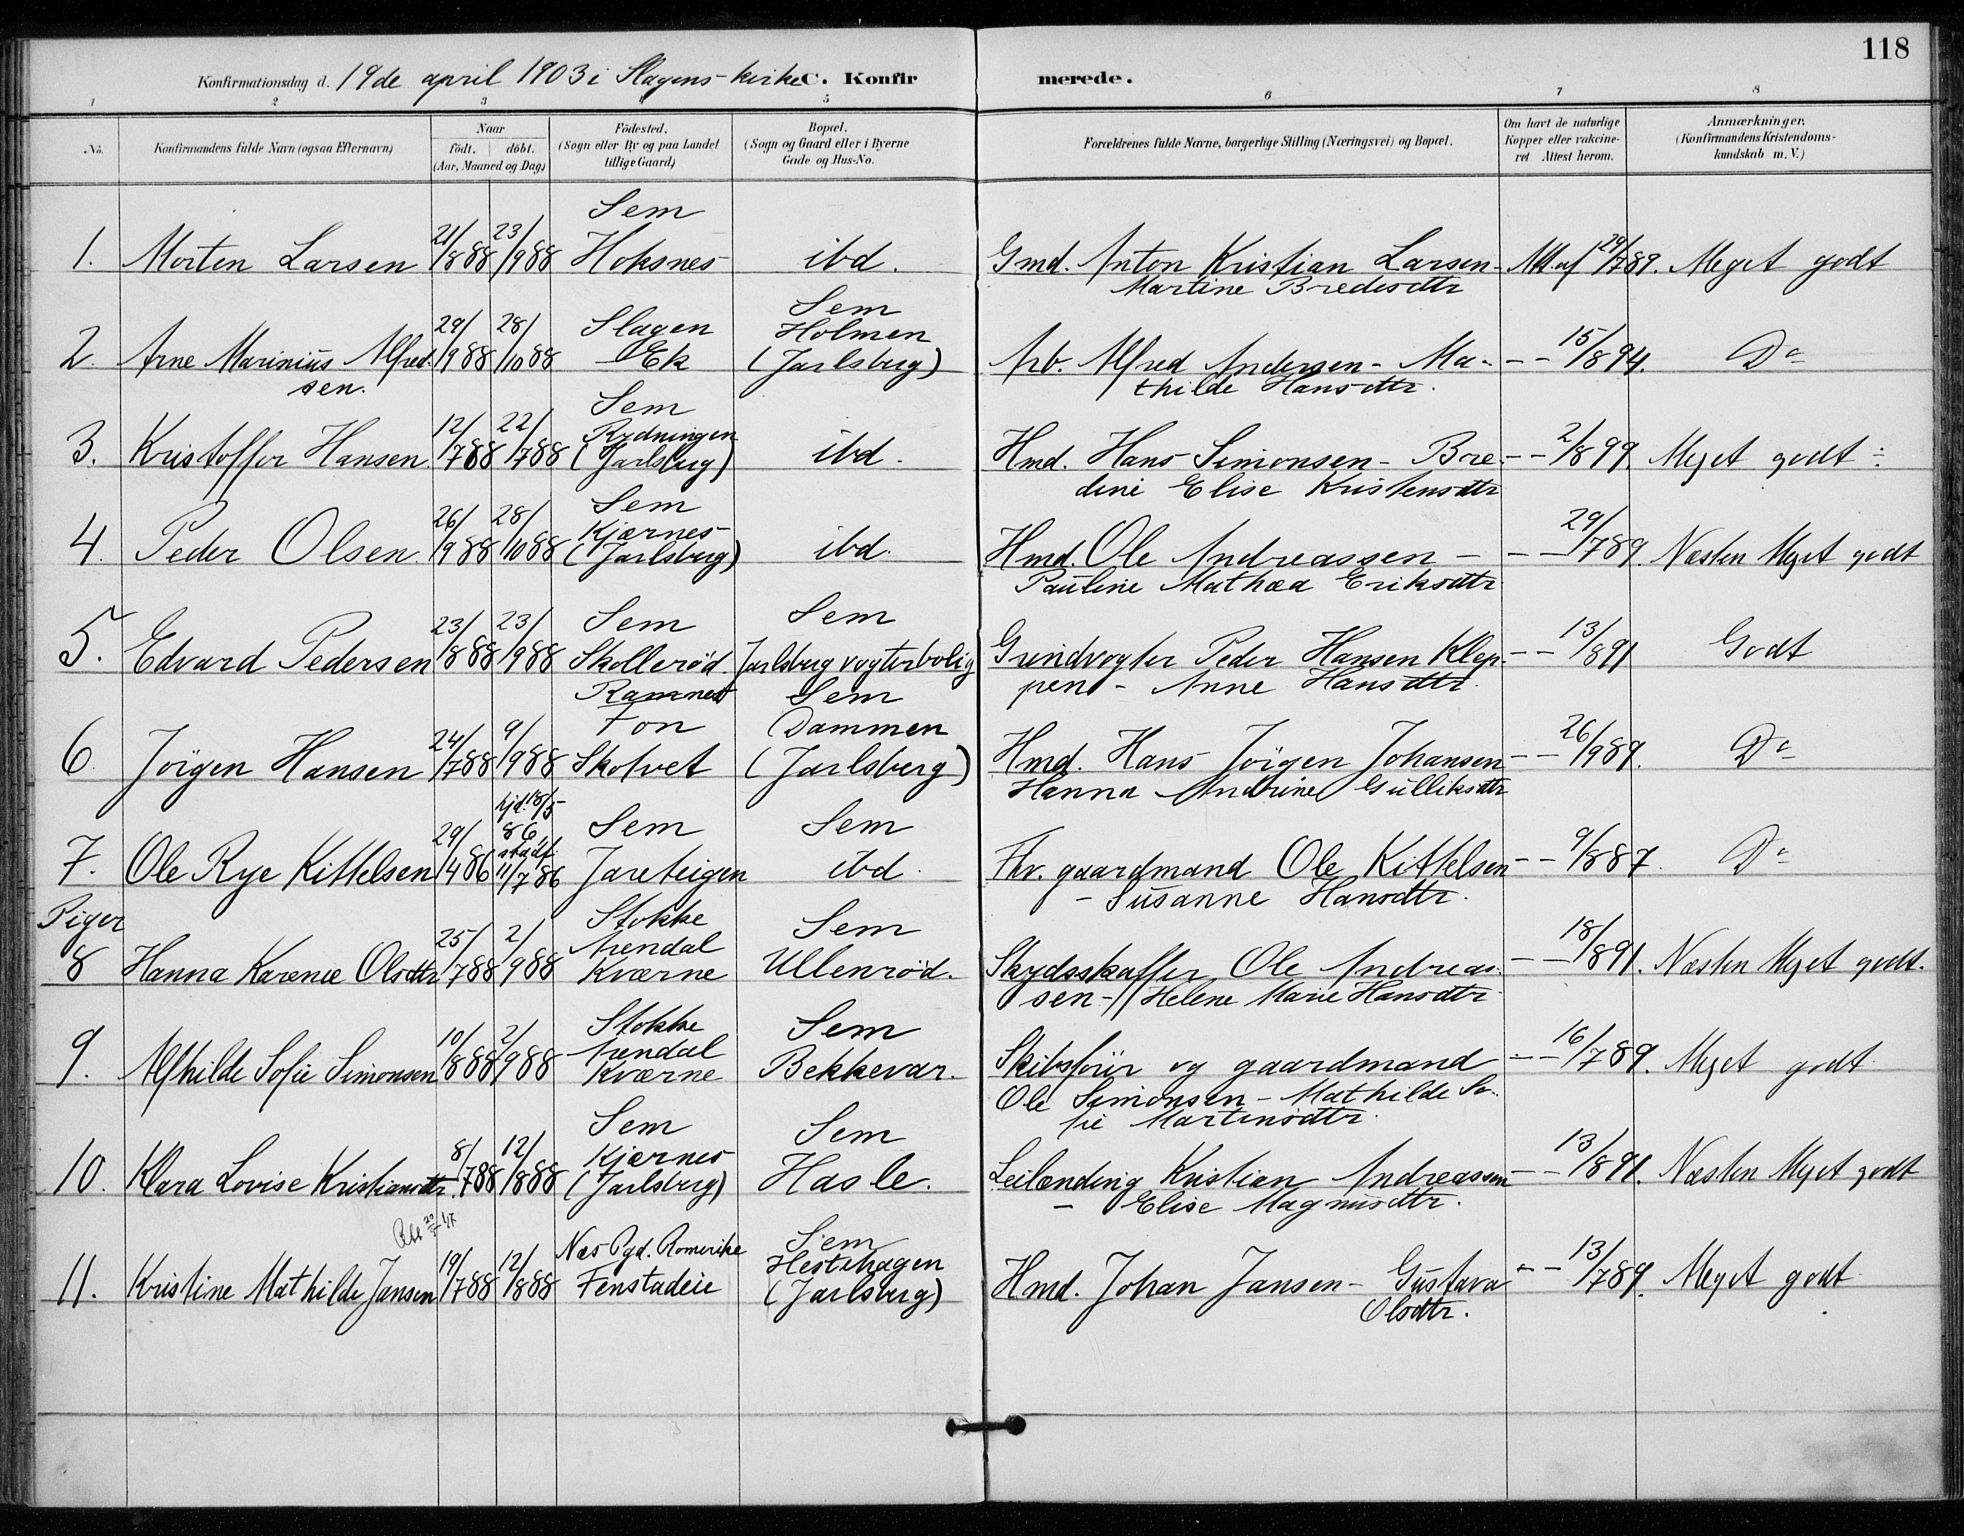 118
Konfirmationsdag d. 19de april 1903 i Slagens-kirke C. Konfirmerede.
1 2 3 5 6 7 8
No. Konfirmandens fulde Navn (ogsaa Efternavn) Naar født. døbt. (Aar, Maaned og Dag) Fødested. (Sogn eller By og paa Landet tillige Gaard) Bopæl. (Sogn og Gaard eller i Byerne Gade og Hus-No. Forældrenes fulde Navne, borgerlige Stilling (Næringsvei) og Bopæl. Om havt de naturlige Kopper eller vakcineret Attest herom. Anmærkninger. (Konfirmandens Kristendomskundskab m. V.)
Sem
1. Morten Larsen 21/8 88 23/9 88 Hoksnes ibd. Gmd. Anton Kristian Larsen- Att. af 29/7 89. Meget godt
Martine Bredesdtr
Slagen Sem Holmen
2. Arne Marinius Alfred- 29/9 88 28/10 88 Ek (Jarlsberg) Arb. Alfred Andersen - Ma- - - 15/8 94. Do
sen. thilde Hansdtr.
Sem Rydningen
3. Kristoffer Hansen 12/7 88 22/7 88 (Jarlsberg) ibd. Hmd. Hans Simonsen - Bre- - - 2/8 99. Meget godt ÷
dine Elise Kristensdtr
Sem Kjærnes
4. Peder Olsen. 26/9 88 28/10 88 (Jarlsberg) ibd. Hmd. Ole Andreassen - - - 29/7 89. Næsten Meget godt
Pauline Mathea Eriksdtr
Sem Sem
5. Edvard Pedersen 23/8 88 23/9 88 Skollerød. Jarlsberg vogterbolig Grindvogter Peder Hansen Klep- - - 13/8 91 Godt
pen - Anne Hansdtr.
Ramnes Fon Sem Dammen
6. Jörgen Hansen 24/7 88 9/9 88 Skotvet (Jarlsberg) Hmd. Hans Jörgen Johansen - - 26/9 89. Do
Hanna Andrine Gulliksdtr
hjd. 18/5 86, stadf. Sem Sem
7. Ole Rye Kittelsen 29/4 86 11/7 86 Jareteigen ibd. Fhv. gaardmand Ole Kittelsen - - 9/8 87. Do
- Susanne Hansdtr.
Piger
Stokke Arendal Sem
8 Hanna Karenie Olsdtr 25/7 88 2/9 88 Kværne Ullenrød. Skydsskaffer Ole Andreas- - - 18/8 91. Næsten Meget godt.
sen - Helene Marie Hansdtr
Stokke Arendal Sem
9. Alfhilde Sofie Simonsen 10/8 88 2/9 88 Kværne Bekkevar. Skibsförer og gaardmand - - 16/7 89. Meget godt
Ole Simonsen - Mathilde So-
fie Martinsdtr.
Sem Kjærnes Sem
10. Klara Lovise Kristiansdtr. 8/7 88 12/8 88 (Jarlsberg) Hasle. Leilending Kristian Andreassen - - 13/8 91. Næsten Meget godt
- Elise Magnusdtr.
Næs Pgd. Romerike Sem Hestehagen
11. Kristine Mathilde Jansen 19/7 88 12/8 88 Fenstadeie (Jarlsberg) Hmd. Johan Jansen - Gustava - - 13/7 89. Meget godt
Olsdtr.